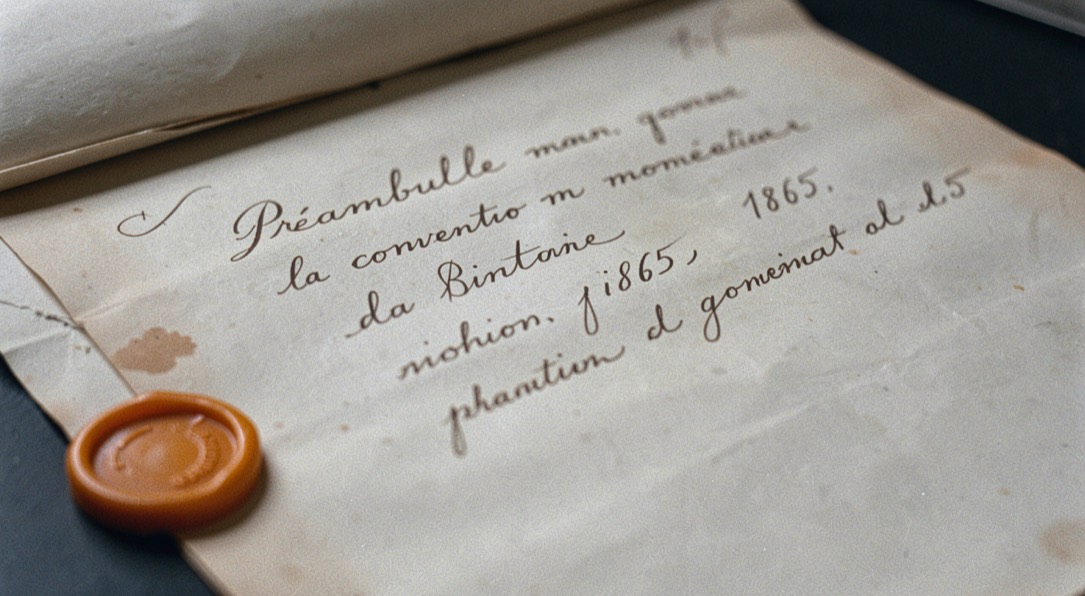 Préambulle mann. gomac
la conventio m moméatiane
da Bintaine 1865.
niohion. ji865,
phamtium d gomeimat al d.5